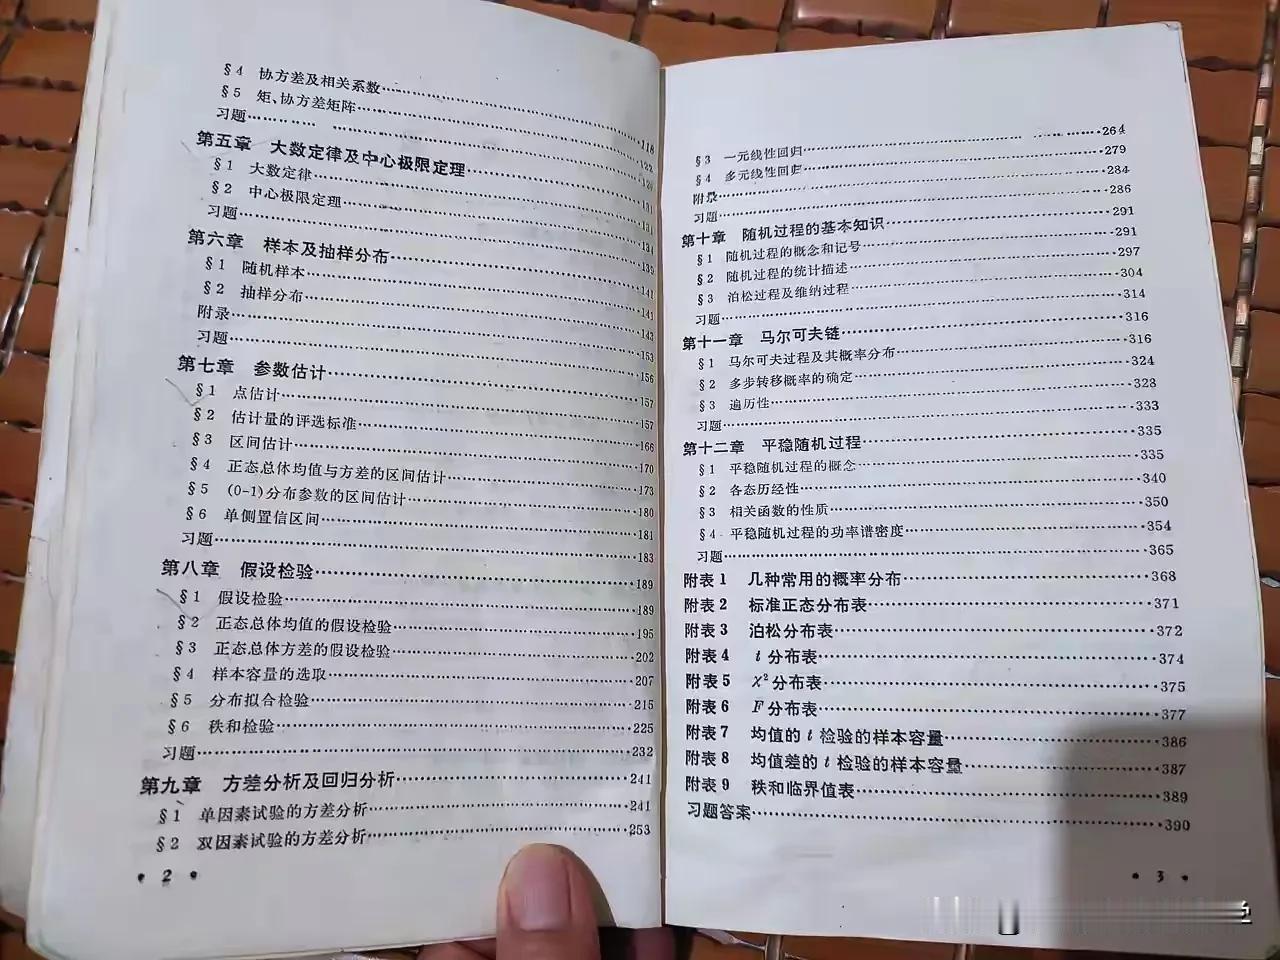 §4 协方差及相关系数……118
§5 矩、协方差矩阵……122
习题……
第五章 大数定律及中心极限定理……131
§1 大数定律……131
§2 中心极限定理……134
习题……139
第六章 样本及抽样分布……141
§1 随机样本……141
§2 抽样分布……143
附录……153
习题……156
第七章 参数估计……157
§1 点估计……157
§2 估计量的评选标准……166
§3 区间估计……170
§4 正态总体均值与方差的区间估计……173
§5 (0-1)分布参数的区间估计……180
§6 单侧置信区间……181
习题……183
第八章 假设检验……189
§1 假设检验……189
§2 正态总体均值的假设检验……195
§3 正态总体方差的假设检验……202
§4 样本容量的选取……207
§5 分布拟合检验……215
§6 秩和检验……225
习题……232
第九章 方差分析及回归分析……241
§1 单因素试验的方差分析……241
§2 双因素试验的方差分析……253
· 2 ·
§3 一元线性回归……264
§4 多元线性回归……279
附录……284
习题……286
第十章 随机过程的基本知识……291
§1 随机过程的概念和记号……291
§2 随机过程的统计描述……297
§3 泊松过程及维纳过程……304
习题……314
第十一章 马尔可夫链……316
§1 马尔可夫过程及其概率分布……316
§2 多步转移概率的确定……324
§3 遍历性……328
习题……333
第十二章 平稳随机过程……335
§1 平稳随机过程的概念……335
§2 各态历经性……340
§3 相关函数的性质……350
§4 平稳随机过程的功率谱密度……354
习题……365
附表1 几种常用的概率分布……368
附表2 标准正态分布表……371
附表3 泊松分布表……372
附表4 t 分布表……374
附表5 χ²分布表……375
附表6 F 分布表……377
附表7 均值的 t 检验的样本容量……386
附表8 均值差的 t 检验的样本容量……387
附表9 秩和临界值表……389
习题答案……390
· 3 ·